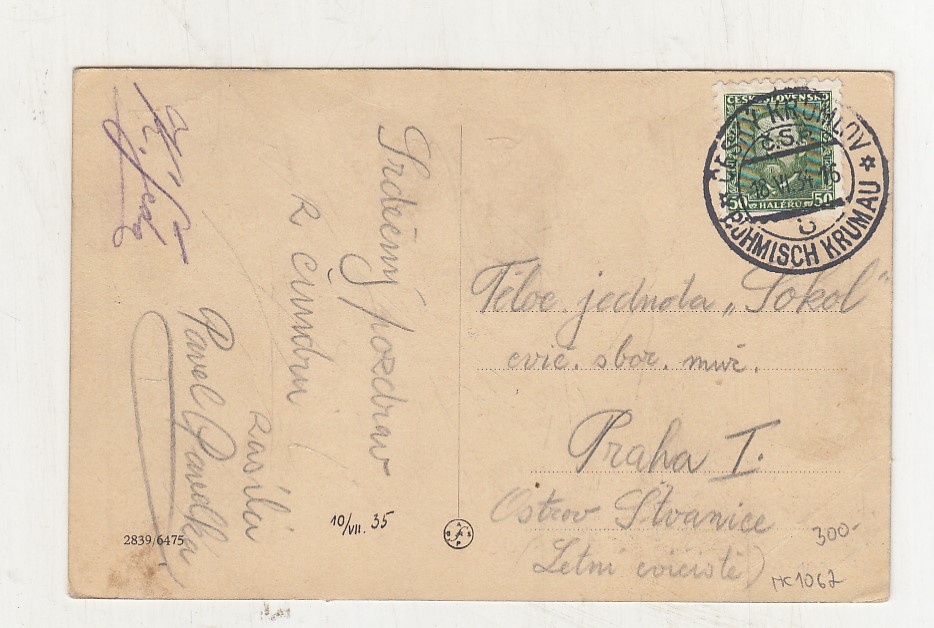 Srdečný pozdrav
z čundru
zasílá
Pavel Pavelka
10/VII. 35
2839/6475
ČESKÝ KRUMLOV
Č.S.R.
18.VI.34 16
BÖHMISCH KRUMAU
ČESKOSLOVENSKO
50 HALÉŘŮ 50
Těloc. jednota „Sokol"
cvič. sbor. muž.
Praha I.
Ostrov Štvanice
(Letní cvičiště)
300-
MK1067